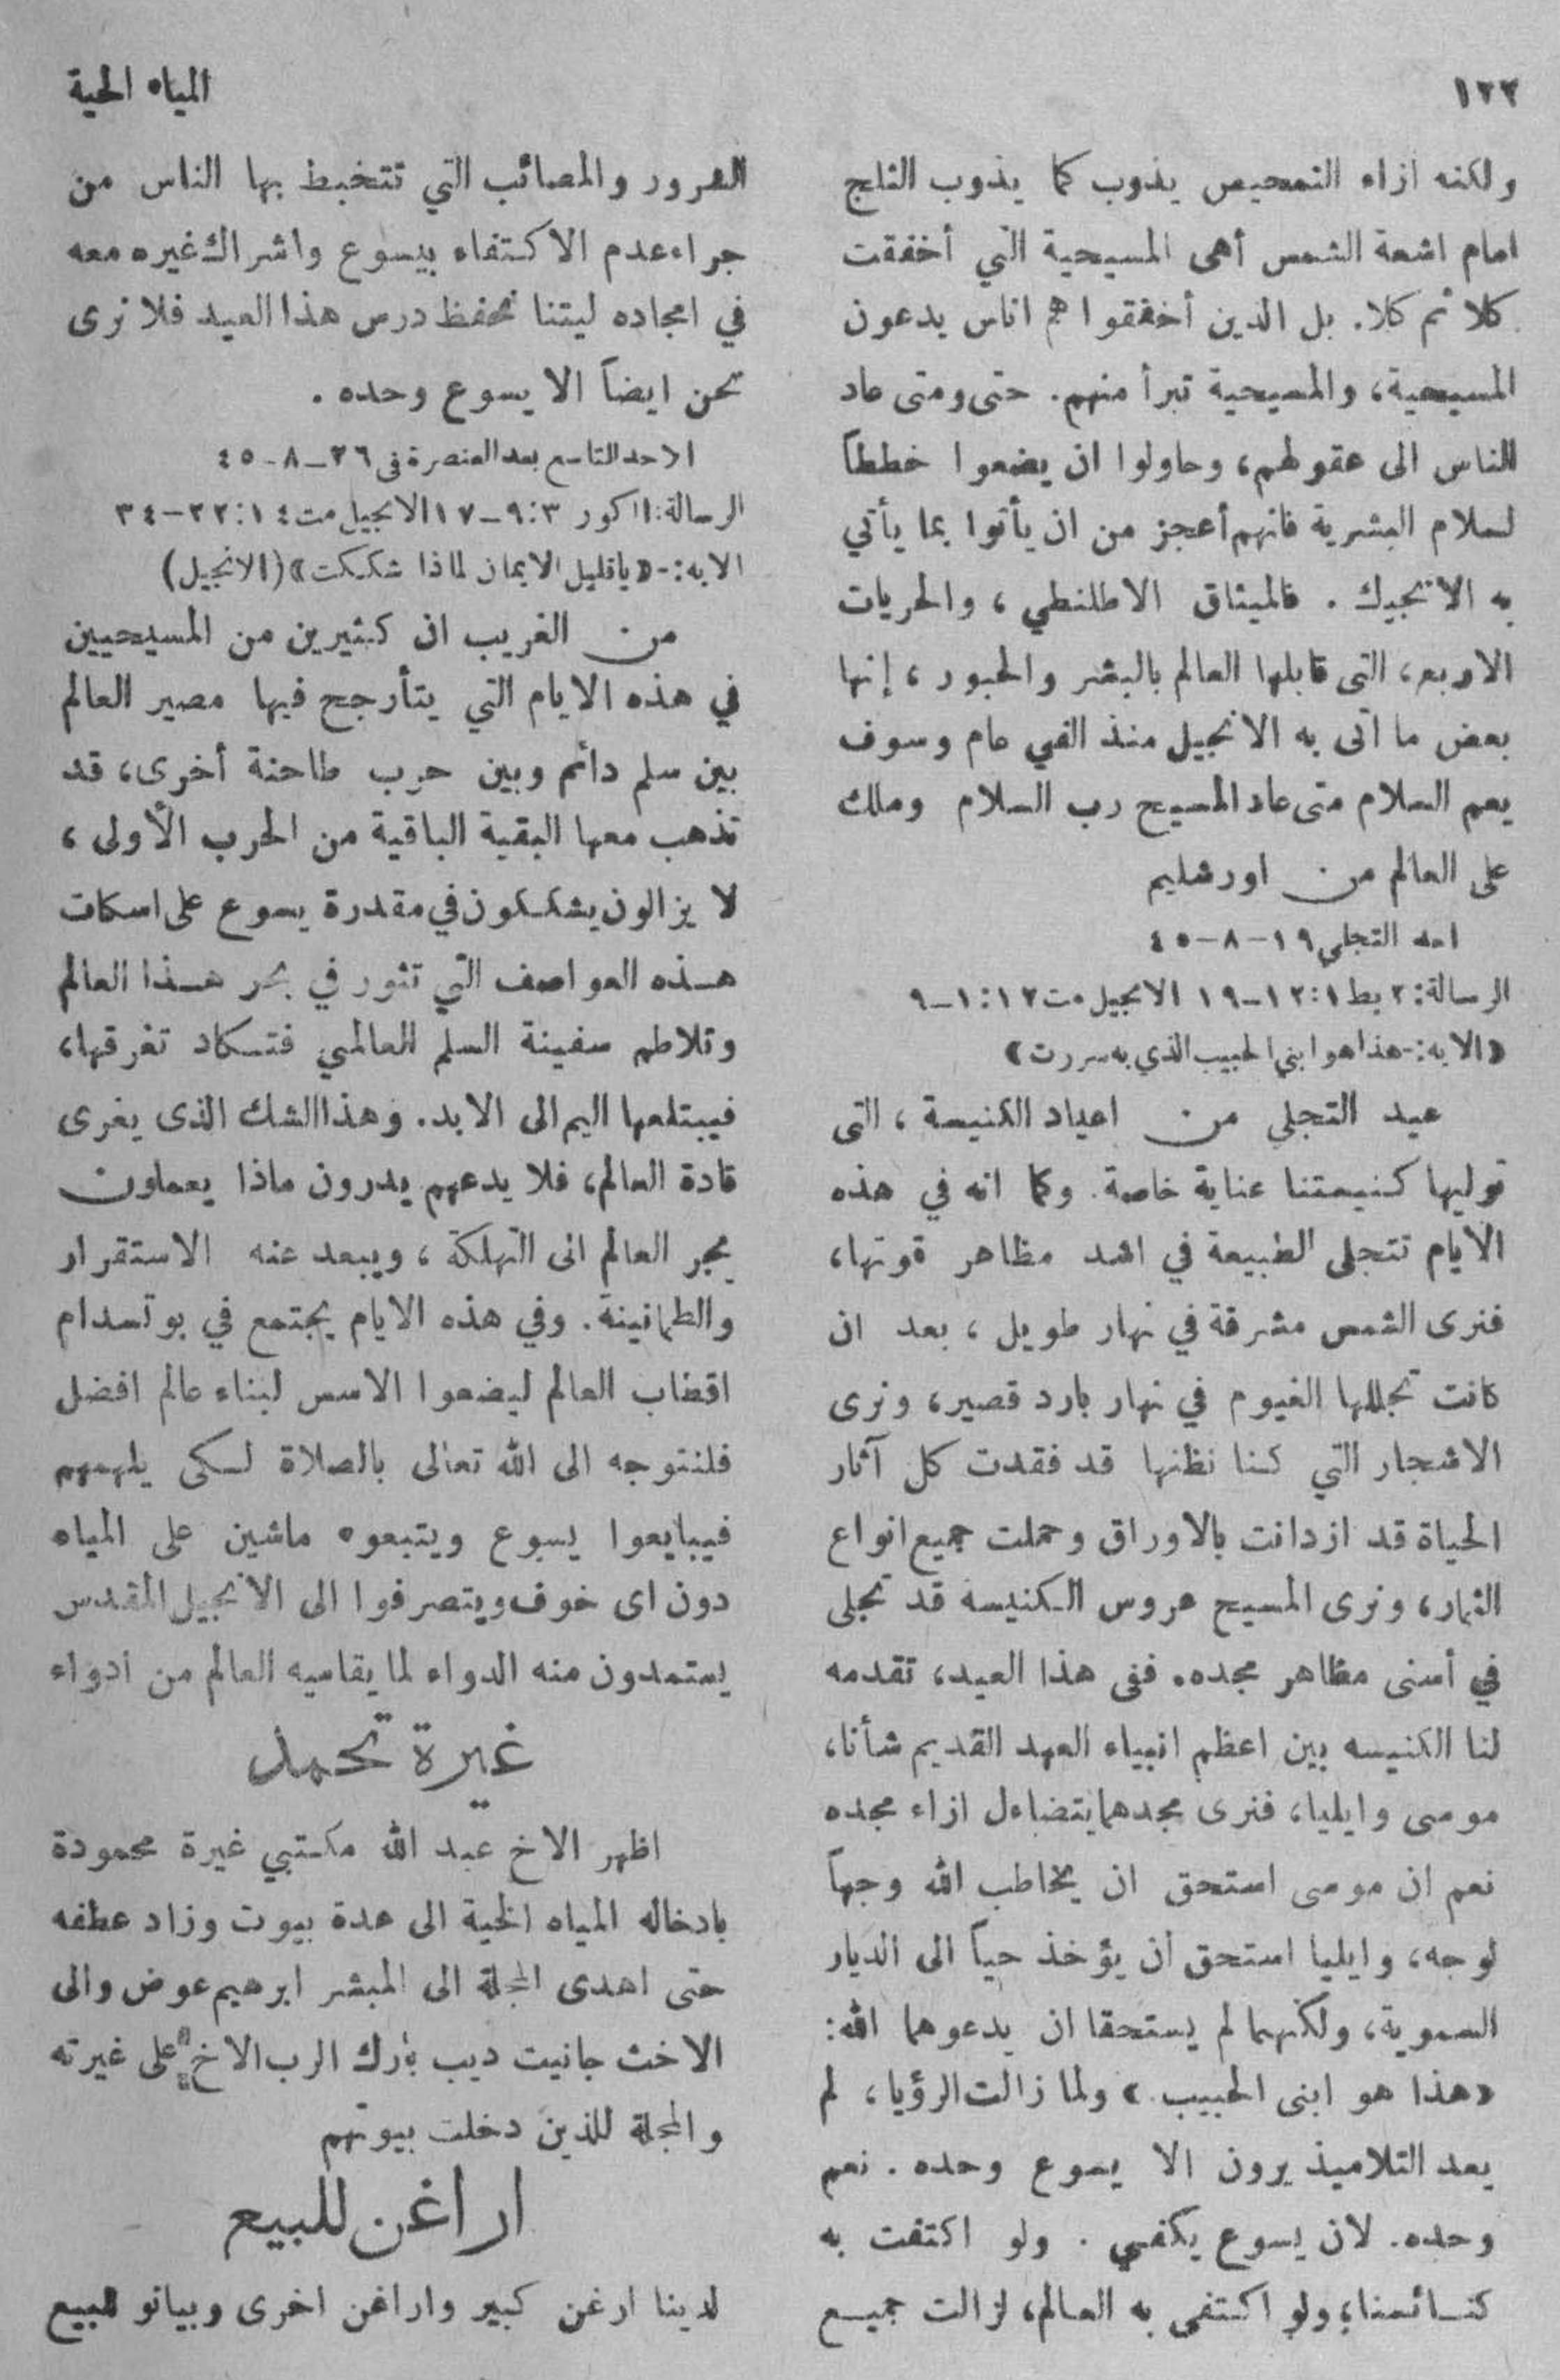 ١٢٢
المياه الحية
ولكنه ازاء التمحيص يذوب كما يذوب الثلج
امام اشعة الشمس أهى المسيحية التي أخفقت
كلا ثم كلا. بل الذين أخفقوا هم اناس يدعون
المسيحية، والمسيحية تبرأ منهم. حتى ومتى عاد
الناس الى عقولهم، وحاولوا ان يضعوا خططاً
لسلام البشرية فانهم أعجز من ان يأتوا بما يأتي
به الانجيل. فالميثاق الاطلنطي، والحريات
الاربع، التى قابلها العالم بالبشر والحبور، إنها
بعض ما اتى به الانجيل منذ الفي عام وسوف
يعم السلام متى عاد المسيح رب السلام وملك
على العالم من اورشليم
احد التجلي ١٩-٨-٤٥
الرسالة: ٢ بط ١٢:١-١٩ الانجيل مت ١:١٧-٩
«الايه:-هذا هو ابني الحبيب الذي به سررت»
عيد التجلي من اعياد الكنيسة، التى
توليها كنيستنا عناية خاصة. وكما انه في هذه
الايام تتجلى الطبيعة في اشد مظاهر قوتها،
فنرى الشمس مشرقة في نهار طويل، بعد ان
كانت تجللها الغيوم في نهار بارد قصير، ونرى
الاشجار التي كنا نظنها قد فقدت كل آثار
الحياة قد ازدانت بالاوراق وحملت جميع انواع
الثمار، ونرى المسيح عروس الكنيسه قد تجلى
في أسنى مظاهر مجده. ففى هذا العيد، تقدمه
لنا الكنيسه بين اعظم انبياء العهد القديم شأنا،
موسى وايليا، فنرى مجدهما يتضاءل ازاء مجده
نعم ان موسى استحق ان يخاطب الله وجهاً
لوجه، وايليا استحق أن يؤخذ حياً الى الديار
السموية، ولكنهما لم يستحقا ان يدعوهما الله:
«هذا هو ابنى الحبيب.» ولما زالت الرؤيا، لم
يعد التلاميذ يرون الا يسوع وحده. نعم
وحده. لان يسوع يكفي. ولو اكتفت به
كنائسنا، ولو اكتفى به العالم، لزالت جميع
الشرور والمصائب التي تتخبط بها الناس من
جراء عدم الاكتفاء بيسوع واشراك غيره معه
في امجاده ليتنا نحفظ درس هذا العيد فلا نرى
نحن ايضاً الا يسوع وحده.
الاحد التاسع بعد العنصرة فى ٢٦-٨-٤٥
الرسالة: ١ كور ٩:٣-١٧ الانجيل مت ٢٢:١٤-٣٤
الايه:-«يا قليل الايمان لماذا شككت» (الانجيل)
من الغريب ان كثيرين من المسيحيين
في هذه الايام التي يتأرجح فيها مصير العالم
بين سلم دائم وبين حرب طاحنة أخرى، قد
تذهب معها البقية الباقية من الحرب الأولى،
لا يزالون يشككون في مقدرة يسوع على اسكات
هذه العواصف التي تثور في بحر هذا العالم
وتلاطم سفينة السلم العالمي فتكاد تغرقها،
فيبتلعها اليم الى الابد. وهذا الشك الذى يغرى
قادة العالم، فلا يدعهم يدرون ماذا يعملون
يجر العالم الى التهلكة، ويبعد عنه الاستقرار
والطمانينة. وفي هذه الايام يجتمع في بوتسدام
اقطاب العالم ليضعوا الاسس لبناء عالم افضل
فلنتوجه الى الله تعالى بالصلاة لكى يلهمهم
فيبايعوا يسوع ويتبعوه ماشين على المياه
دون اى خوف ويتصرفوا الى الانجيل المقدس
يستمدون منه الدواء لما يقاسيه العالم من ادواء
غيرة تحمد
اظهر الاخ عبد الله مكتبي غيرة محمودة
بادخاله المياه الحية الى عدة بيوت وزاد عطفه
حتى اهدى المجلة الى المبشر ابرهيم عوض والى
الاخت جانيت ديب بارك الرب الاخ على غيرته
والمجلة للذين دخلت بيوتهم
اراغن للبيع
لدينا ارغن كبير واراغن اخرى وبيانو للبيع